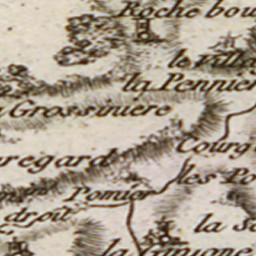 Roche bou
le Villa
la Pennier
Grossiniere
regard
Courg
les Po
Pomier
droit
la
la